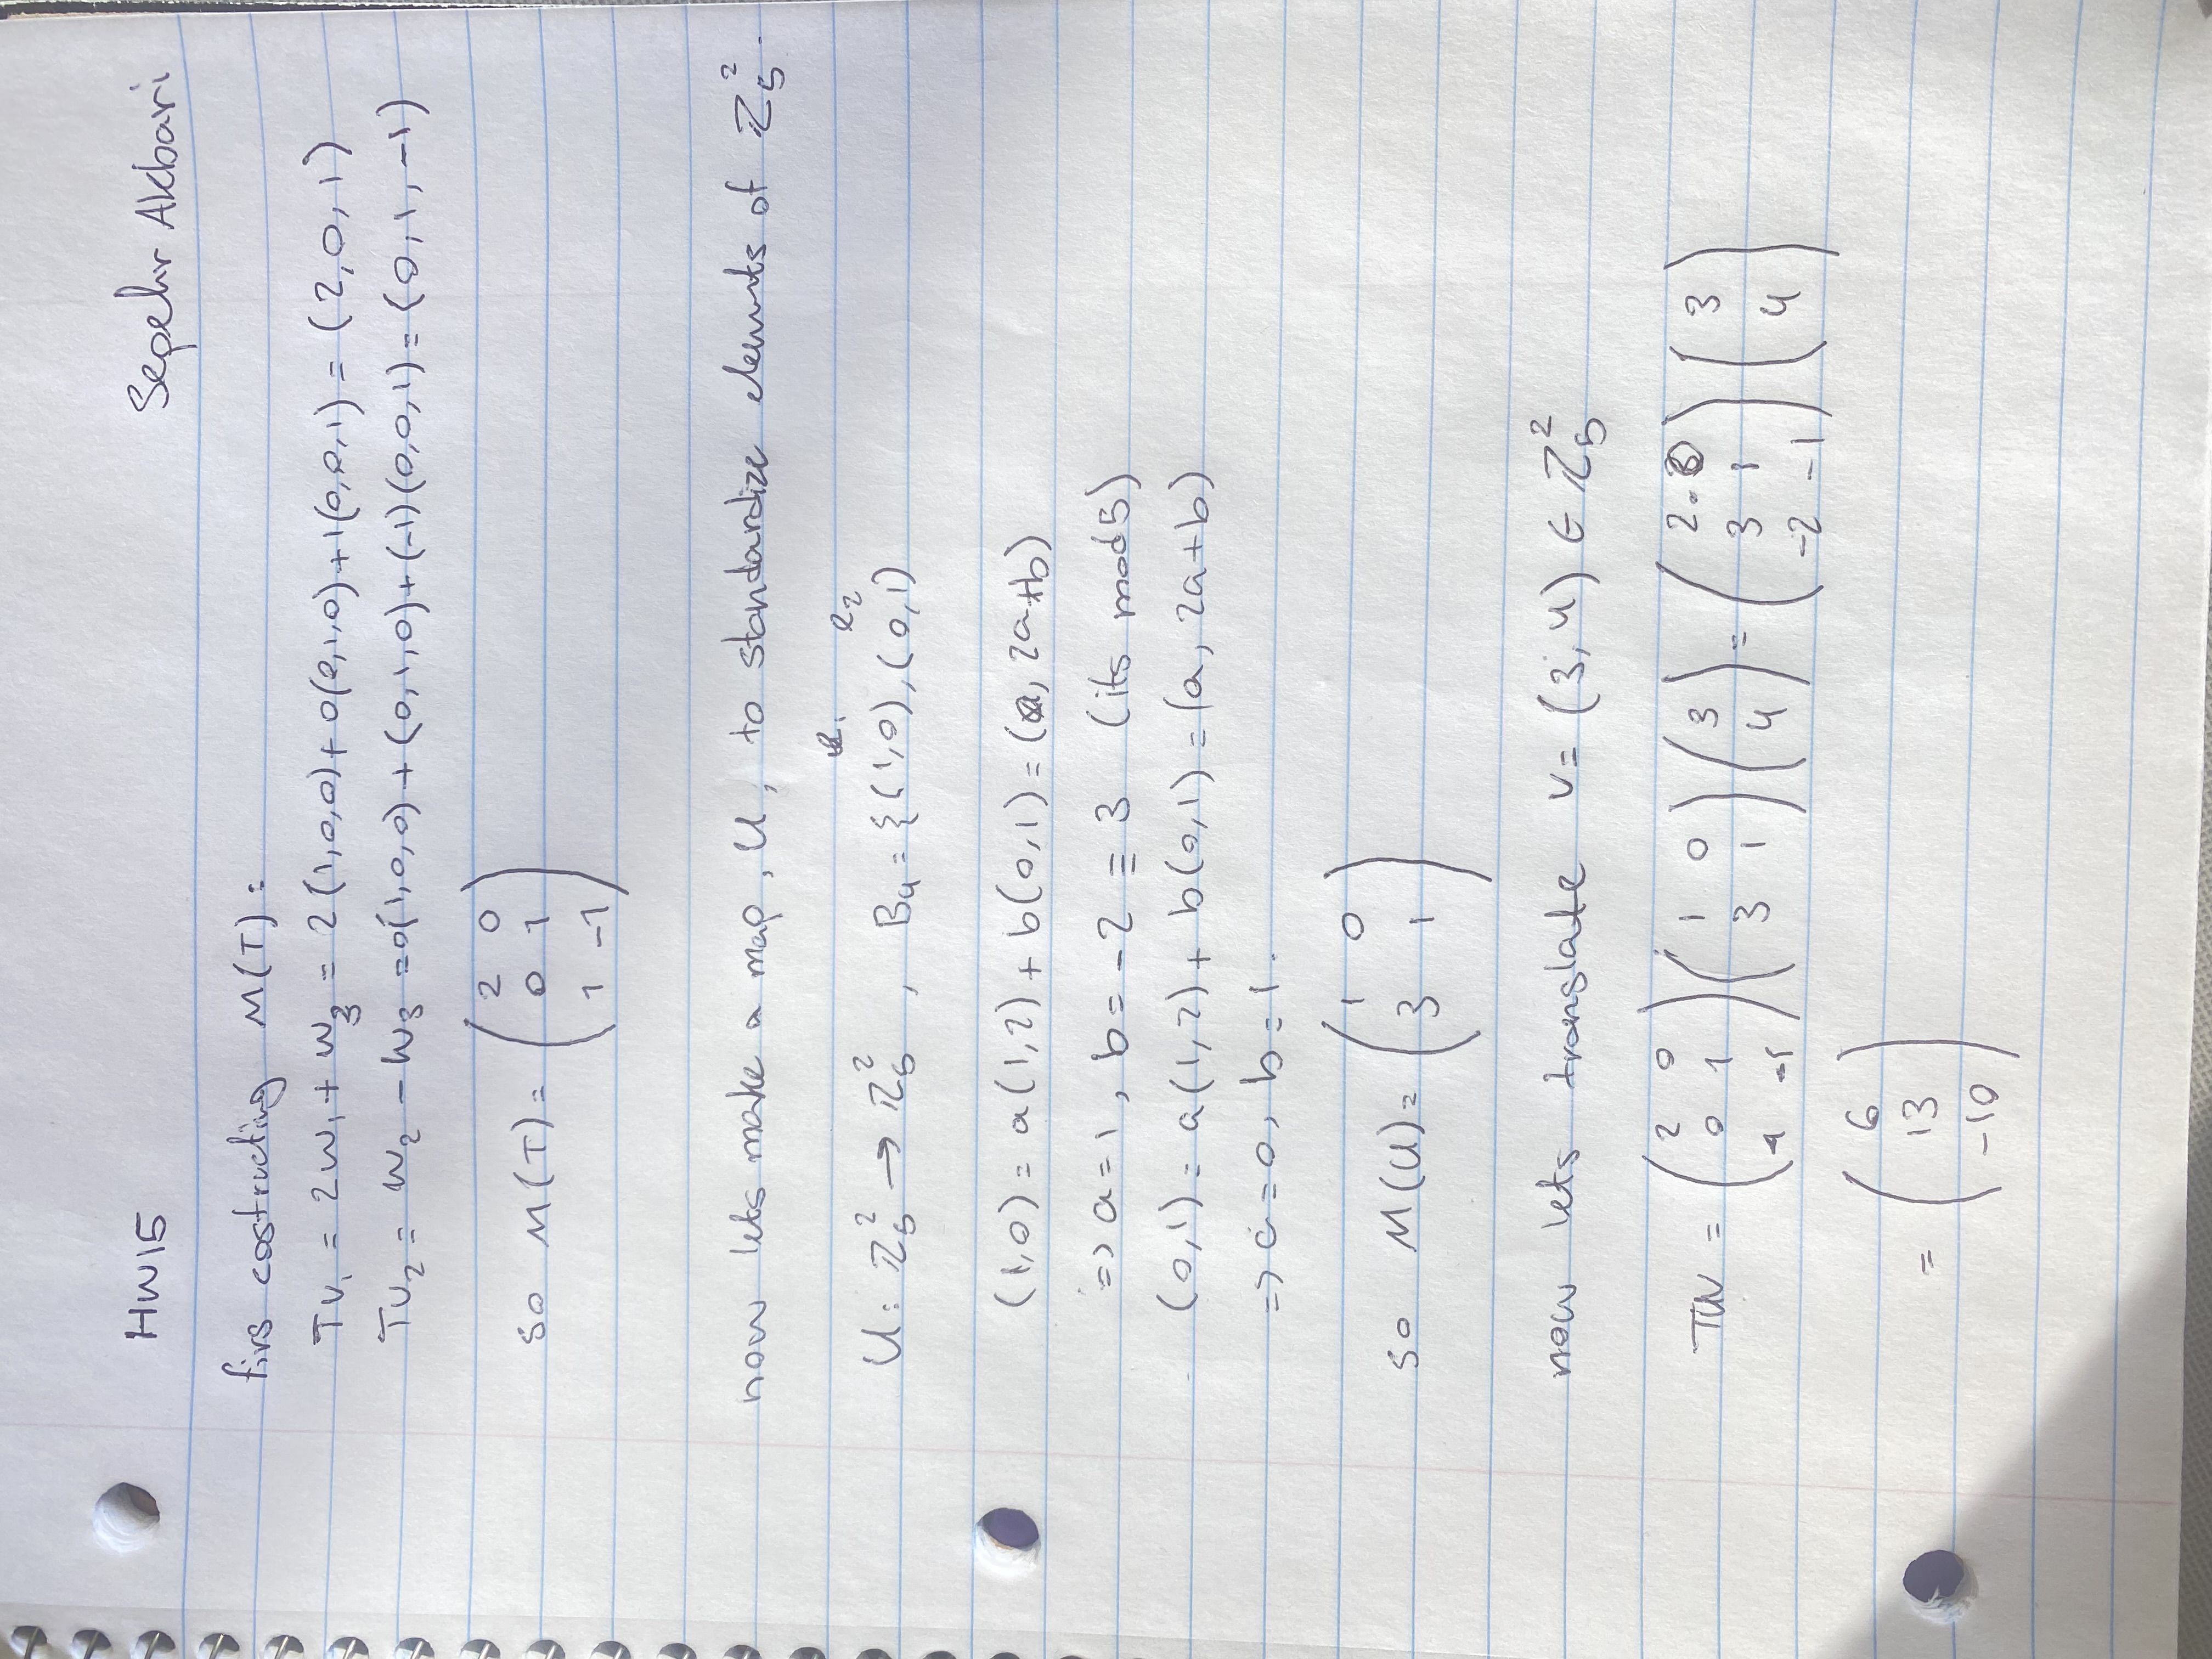 HW15
Sepehr Akbari
firs costructing M(T):
Tv₁ = 2w₁ + w₃ = 2(1,0,0) + 0(0,1,0) + 1(0,0,1) = (2,0,1)
Tv₂ = w₂ - w₃ = 0(1,0,0) + (0,1,0) + (-1)(0,0,1) = (0,1,-1)
2 0
so M(T) = 0 1
1 -1
now lets make a map, U, to standardize elements of ℤ₅².
e₁ e₂
U: ℤ₅² → ℤ₅² , Bu = {(1,0),(0,1)
(1,0) = a(1,2) + b(0,1) = (a, 2a+b)
=> a=1, b= -2 ≡ 3 (its mod5)
(0,1) = a(1,2) + b(0,1) = (a, 2a+b)
=> a=0, b=1.
1 0
so M(U) = 3 1
now lets translate v= (3,4) ∈ ℤ₅²
TUV = (2 0 / 0 1 / 1 -1) (1 0 / 3 1) (3 / 4) = (2 0 / 3 1 / -2 -1) (3 / 4)
= (6 / 13 / -10)